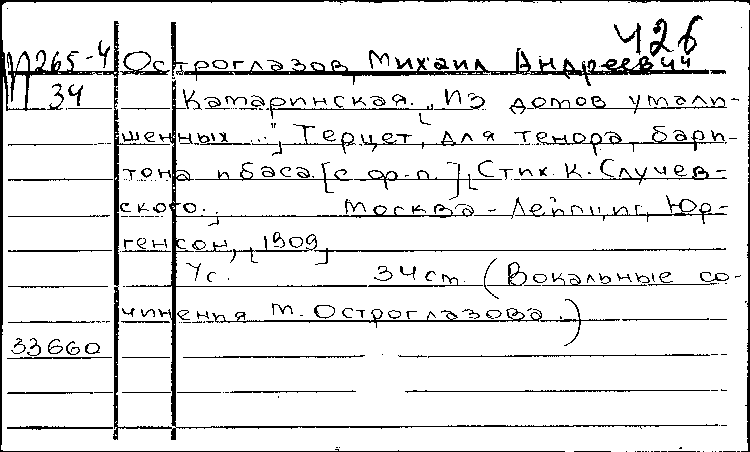 426
М265-4 Остроглазов, Михаил Андреевич
34 Катаринская. „Из домов умали-
шенных ..."] Терцет, для тенора, бари-
тона и баса [с ф-п.] [Стих. К. Случев-
ского. Москва - Лейпциг, Юр-
генсон, [1909]
7с. 34 ст. (Вокальные со-
чинения М. Остроглазова.)
33660